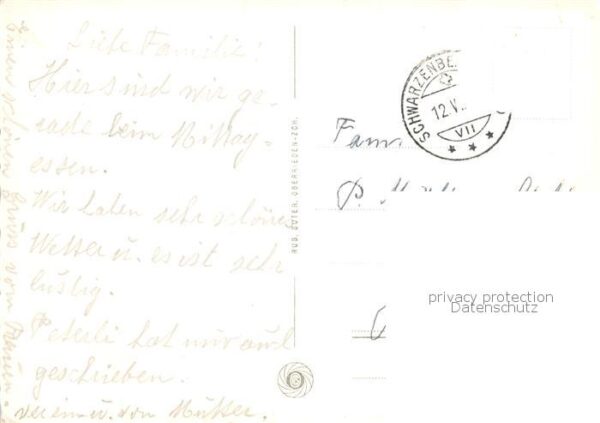 Liebe Familie!
Hier sind wir ge-
rade beim Mittag-
essen.
Wir haben sehr schönes
Wetter u. es ist sehr
lustig.
Peterli hat mir auch
geschrieben.
verein u. von Mutter.
Einen schönen Gruss vom
RUD. SUTER, OBERRIEDEN-ZCH.
SCHWARZENBE
12.V.
VII
Fam
P.
privacy protection
Datenschutz